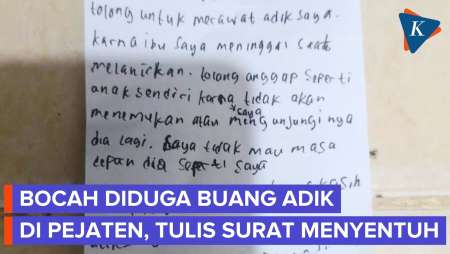 tolong untuk merawat adik saya.
karna ibu saya meninggal saat
melahirkan. tolong anggap seperti
anak sendiri karna tidak akan
saya
menemukan atau mengunjungi nya
dia lagi. saya tidak mau masa
depan dia seperti saya
kasih
K
BOCAH DIDUGA BUANG ADIK
DI PEJATEN, TULIS SURAT MENYENTUH